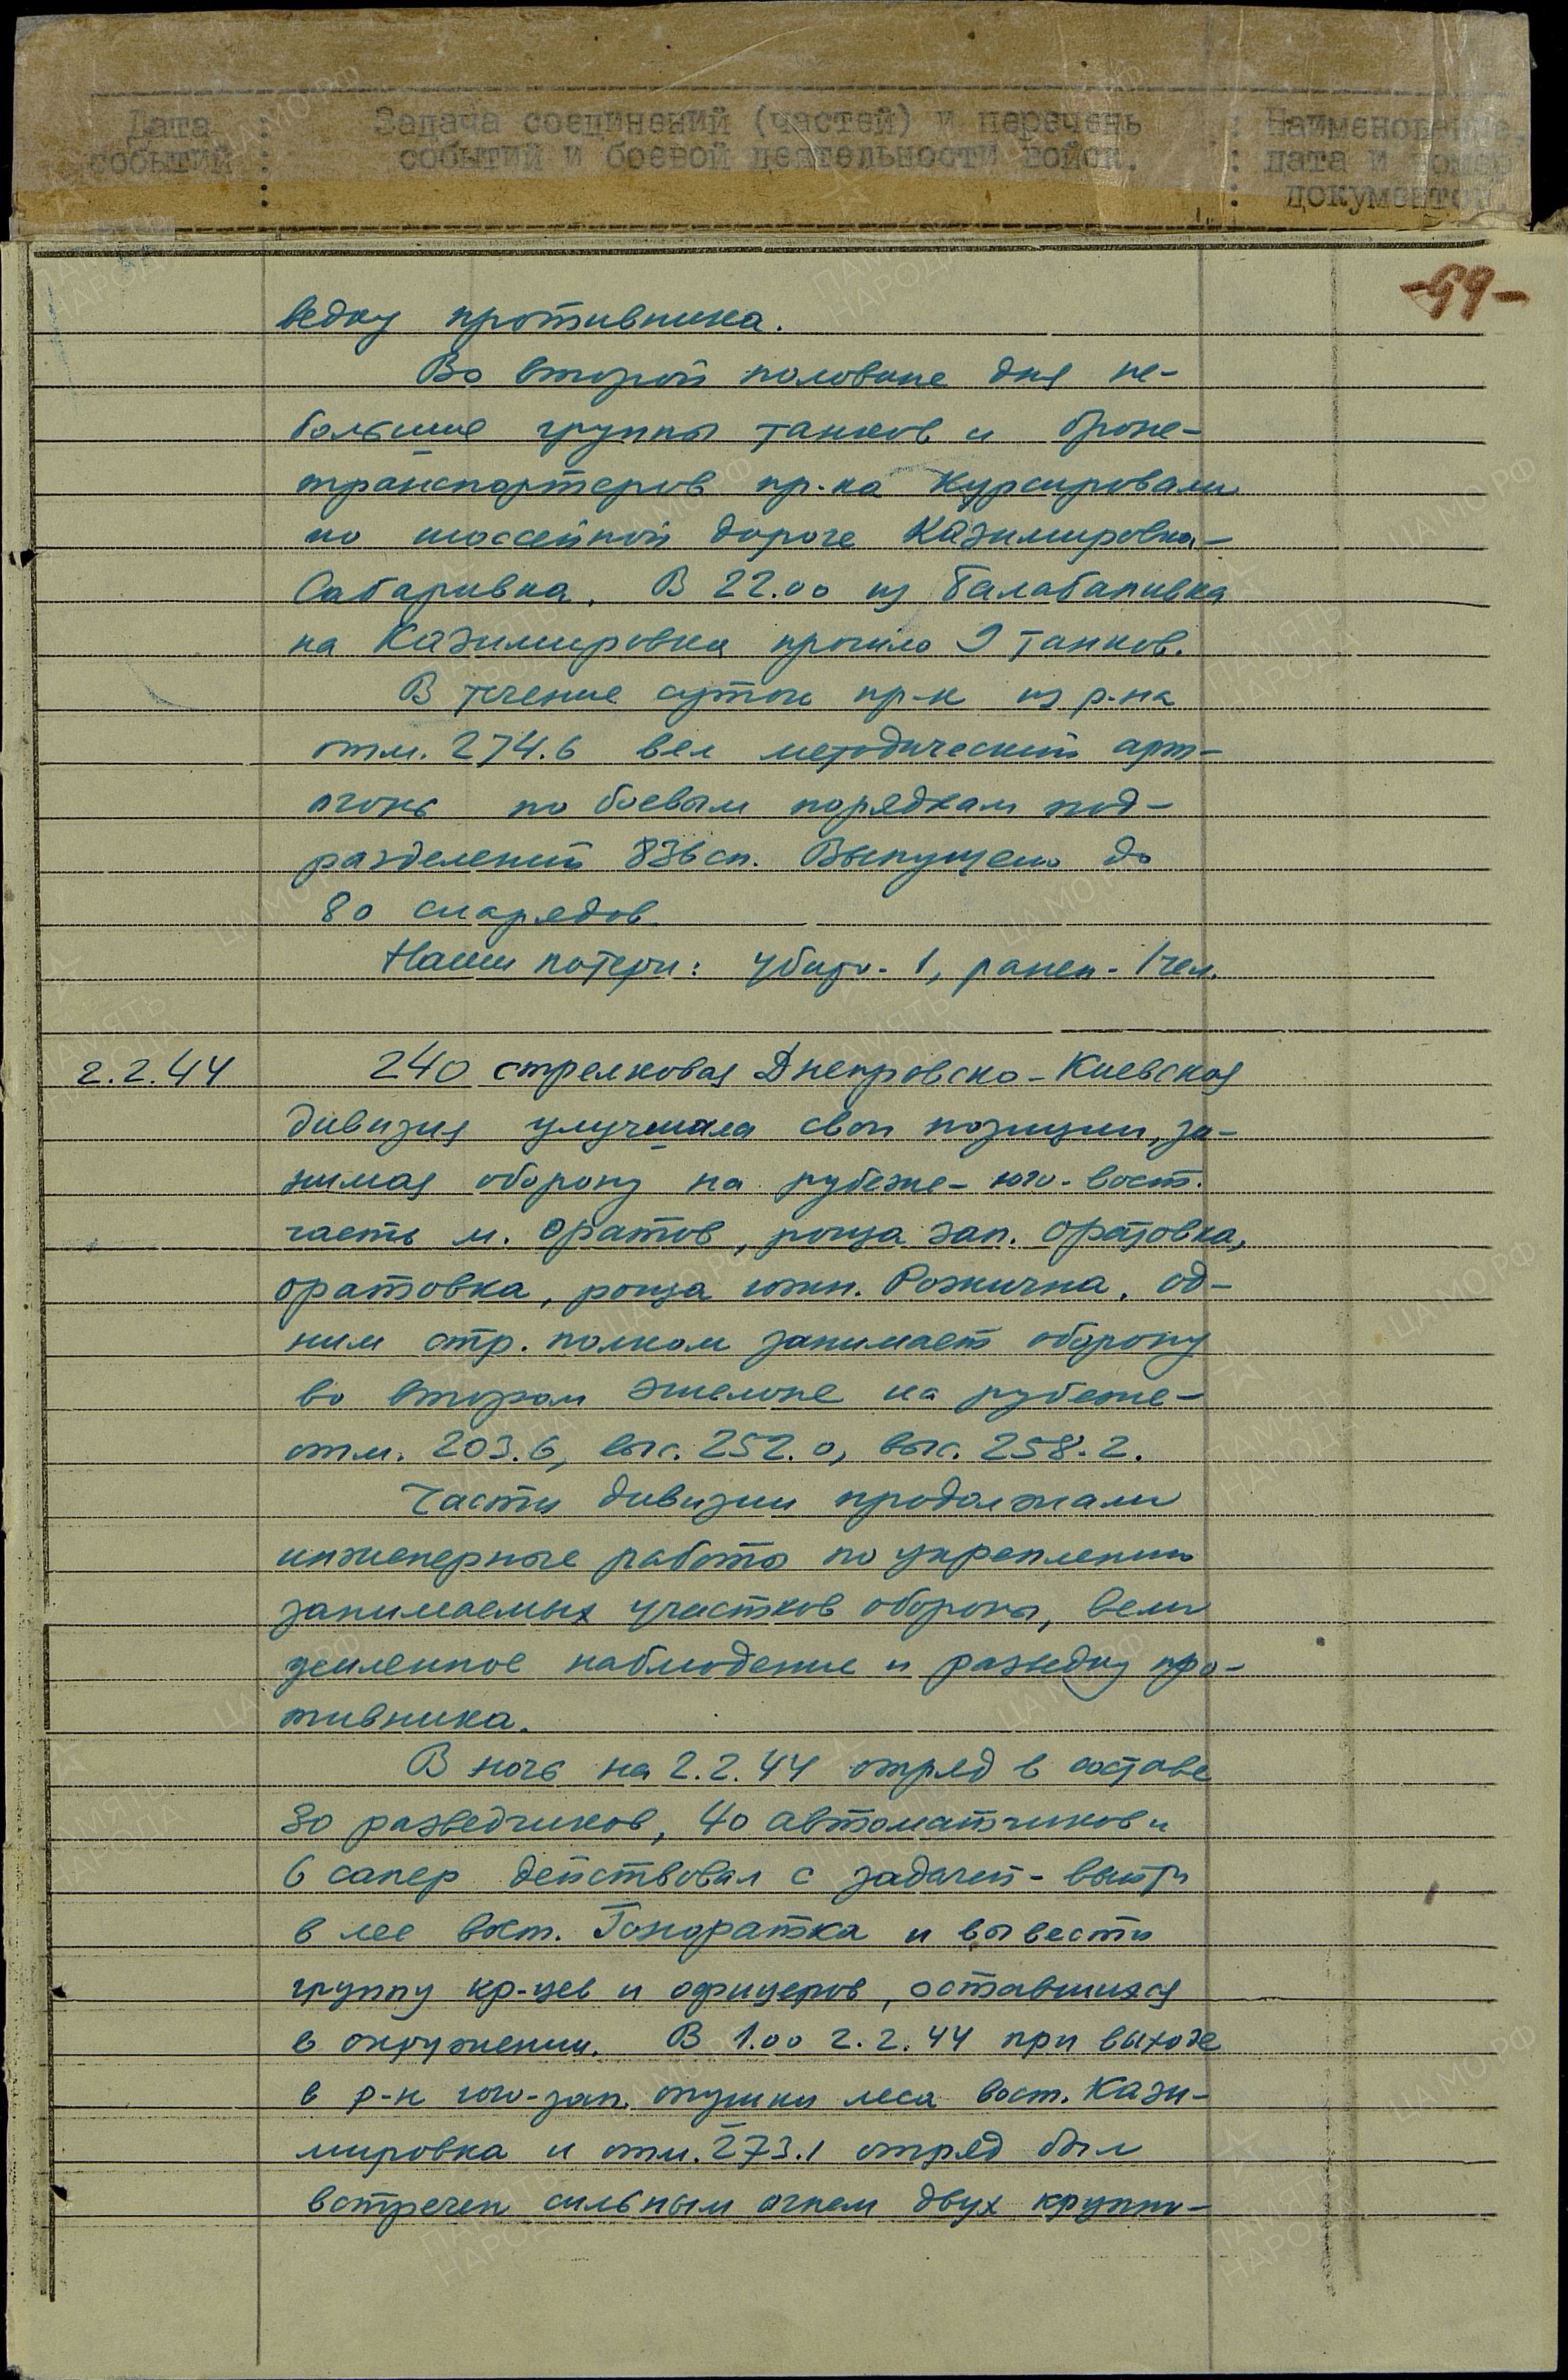 Дата : Задача соединений (частей) и перечень : Наименование,
событий : событий и боевой деятельности войск. : дата и номер
: : документов.
-59-
ведку противника.
Во второй половине дня не-
большие группы танков и броне-
транспортеров пр-ка курсировали
по шоссейной дороге Казимировка-
Сабаривка. В 22.00 из Балабановка
на Казимировка прошло 9 танков.
В течение суток пр-к из р-на
отм. 274.6 вел методический арт-
огонь по боевым порядкам под-
разделений 836 сп. Выпущено до
80 снарядов.
Наши потери: убито - 1, ранен - 1 чел.
2.2.44 240 стрелковая Днепровско-Киевская
дивизия улучшала свои позиции, за-
нимая оборону на рубеже - юго-вост.
часть м. Оратов, роща зап. Оратовка,
Оратовка, роща южн. Рожична. Од-
ним стр. полком занимает оборону
во втором эшелоне на рубеже -
отм. 203.6, выс. 252.0, выс. 258.2.
Части дивизии продолжали
инженерные работы по укреплению
занимаемых участков обороны, вели
усиленное наблюдение и разведку про-
тивника.
В ночь на 2.2.44 отряд в составе
80 разведчиков, 40 автоматчиков и
6 сапер действовал с задачей - выйти
в лес вост. Гоноратка и вывести
группу кр-цев и офицеров, оставшихся
в окружении. В 1.00 2.2.44 при выходе
в р-н юго-зап. опушки леса вост. Кази-
мировка и отм. 273.1 отряд был
встречен сильным огнем двух крупно-